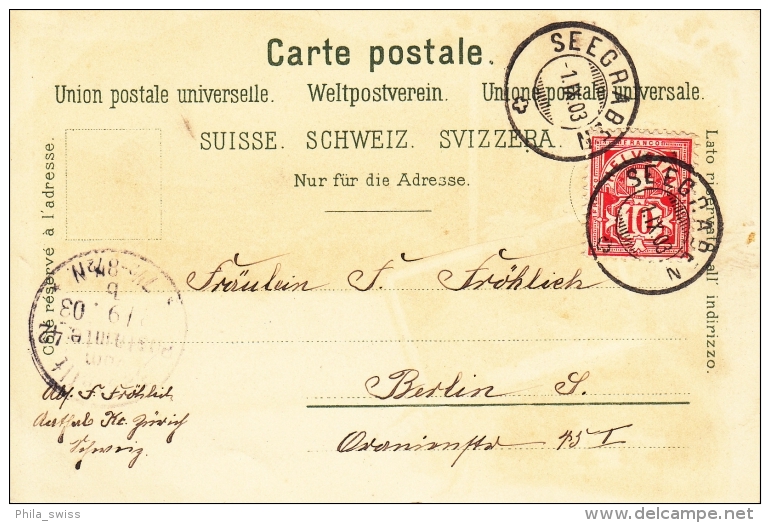 Carte postale.
Union postale universelle. Weltpostverein. Unione postale universale.
SUISSE. SCHWEIZ. SVIZZERA.
Nur für die Adresse.
Côté réservé à l'adresse.
Lato riservato all' indirizzo.
SEEGRÄBEN
-1.IX.03
FRANCO
HELVETIA
10
SEEGRÄBEN
1.IX.03
7½-8½N
b
/9.03
42
Fräulein F. Fröhlich
Berlin S.
Oranienstr
Abs. F. Fröhlich
Aathal Kt. Zürich
Schweiz.
Phila_swiss
delcampe.net